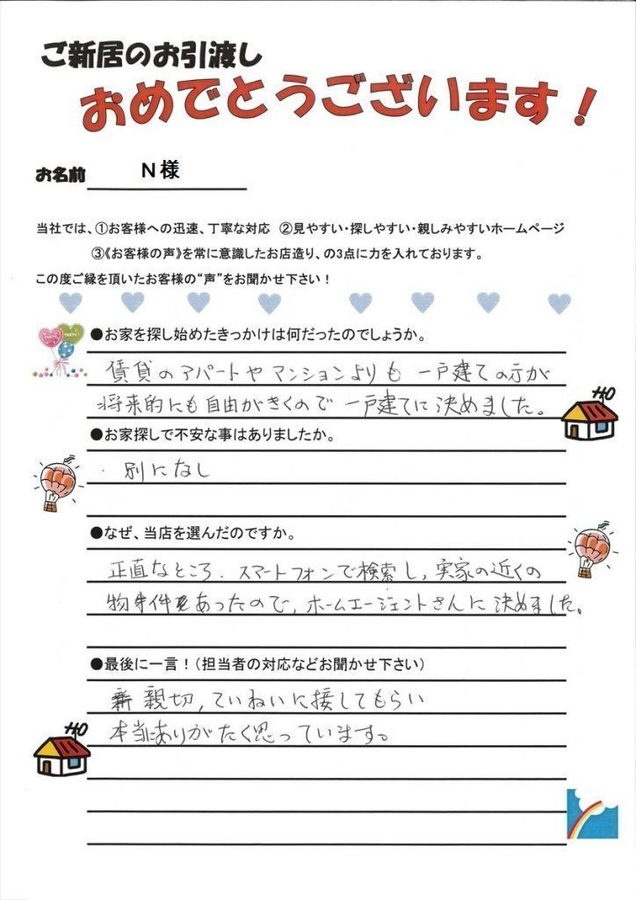 ご新居のお引渡し
おめでとうございます！
お名前 N様
当社では、①お客様への迅速、丁寧な対応 ②見やすい・探しやすい・親しみやすいホームページ
③《お客様の声》を常に意識したお店造り、の3点に力を入れております。
この度ご縁を頂いたお客様の“声”をお聞かせ下さい！
●お家を探し始めたきっかけは何だったのでしょうか。
賃貸のアパートやマンションよりも 一戸建ての方が
将来的にも自由がきくので 一戸建てに決めました。
●お家探しで不安な事はありましたか。
・別になし
●なぜ、当店を選んだのですか。
正直なところ、スマートフォンで検索し、実家の近くの
物件をあったので、ホームエージェントさんに決めました。
●最後に一言！（担当者の対応などお聞かせ下さい）
親切，ていねいに接してもらい
本当にありがたく思っています。